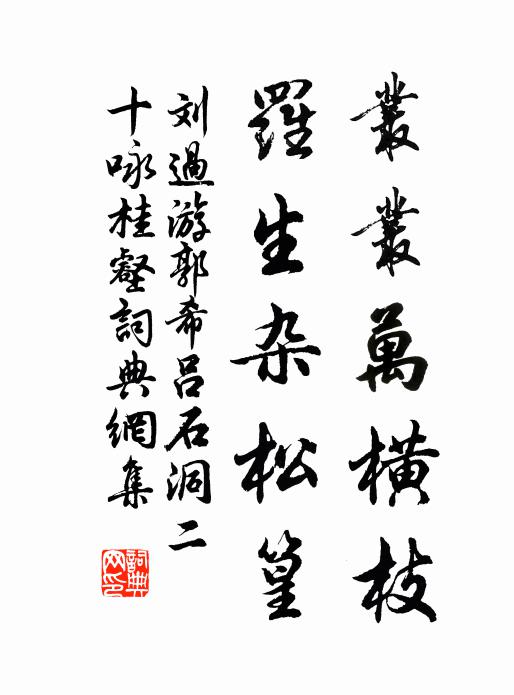 叢叢萬橫枝
羅生杂松篁
刘過游郭希吕石洞二
十咏桂壑詞典網集
詞典
网印